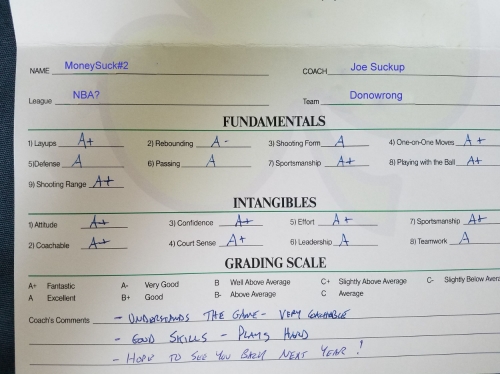 NAME MoneySuck#2 COACH Joe Suckup
League NBA? Team Donowrong
FUNDAMENTALS
1) Layups A+ 2) Rebounding A- 3) Shooting Form A 4) One-on-One Moves A+
5)Defense A 6) Passing A 7) Sportsmanship A+ 8) Playing with the Ball A+
9) Shooting Range A+
INTANGIBLES
1) Attitude A+ 3) Confidence A+ 5) Effort A+ 7) Sportsmanship A+
2) Coachable A+ 4) Court Sense A+ 6) Leadership A 8) Teamwork A
GRADING SCALE
A+ Fantastic A- Very Good B Well Above Average C+ Slightly Above Average C- Slightly Below Avera
A Excellent B+ Good B- Above Average C Average
Coach's Comments - UNDERSTANDS THE GAME - VERY COACHABLE
- GOOD SKILLS - PLAYS HARD
- HOPE TO SEE YOU BACK NEXT YEAR!